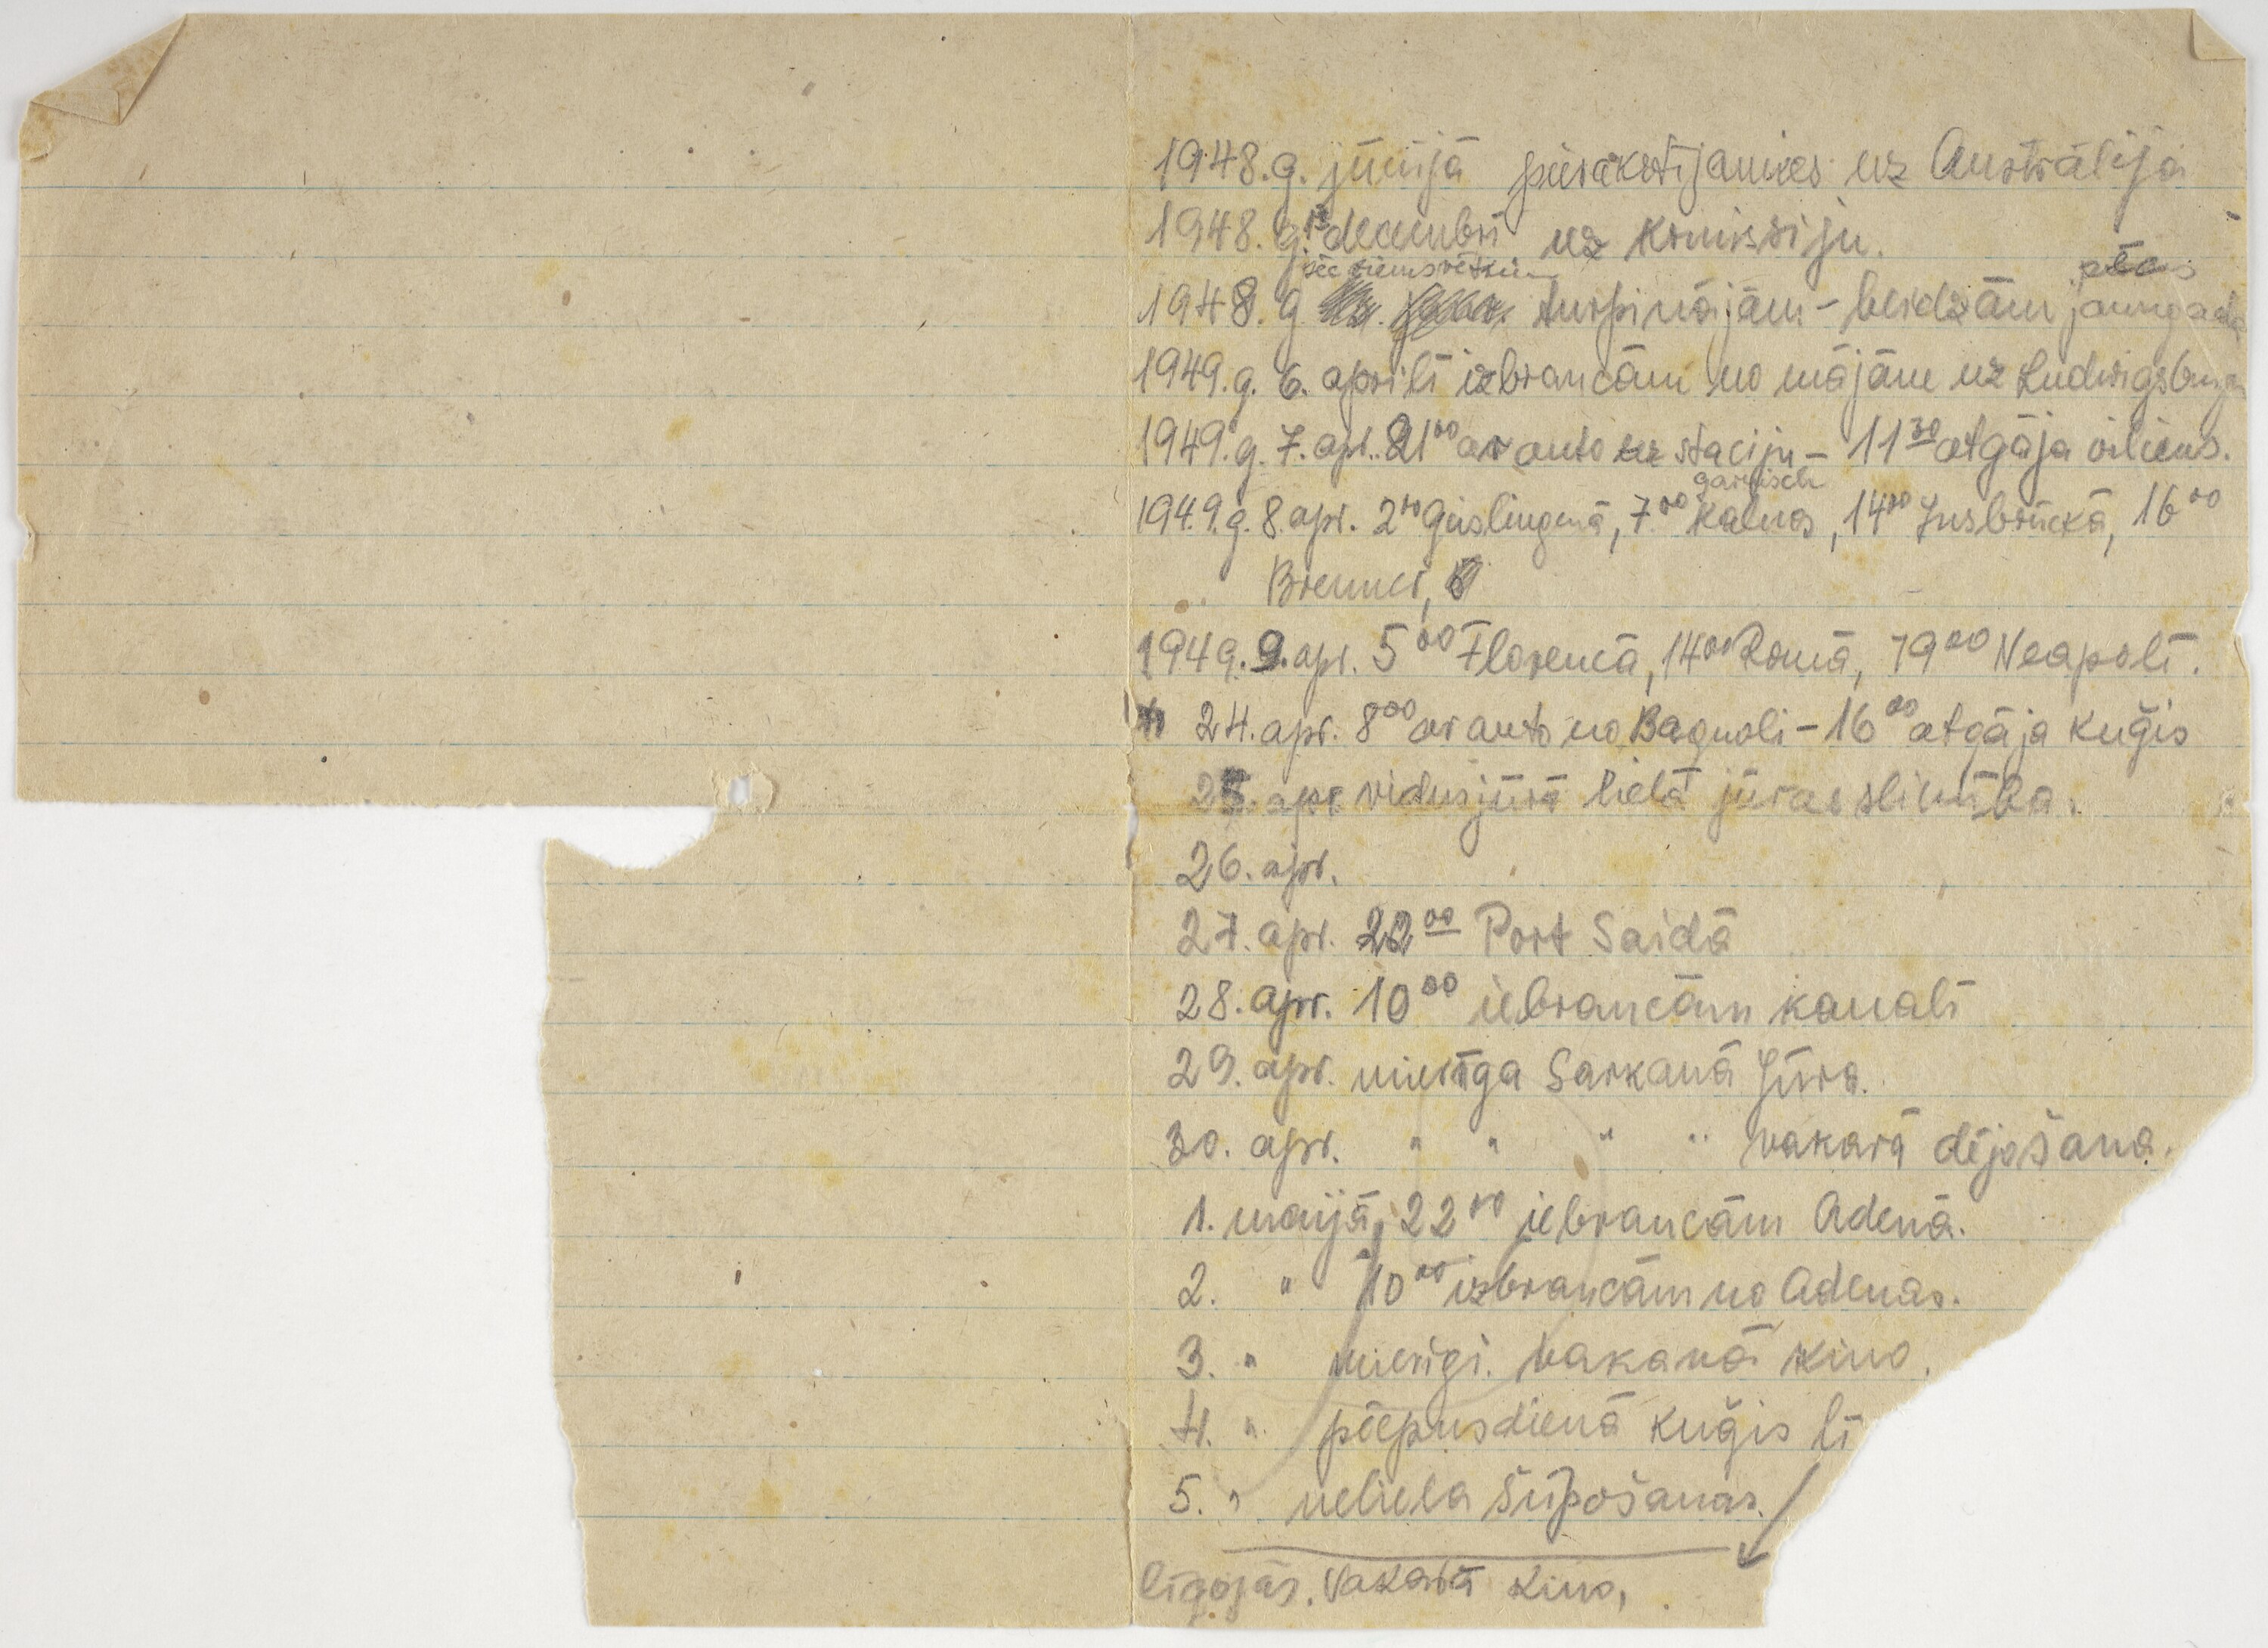 1948.g. jūnijā pierakstījamies uz Austrālija
1948.g. 13 decembrī uz komisiju.
pēc ziemsvētkiem
1948.g turpinājām – beidzām jaungada
1949.g. 6. aprīlī izbraucām no mājām uz Ludwigsburgu
1949.g. 7. apr. 21⁰⁰ ar auto uz staciju – 11³⁰ atgāja vilciens.
garmisch
1949.g. 8. apr. 2⁴⁰ Geislingenā, 7⁰⁰ kalnos, 14⁰⁰ Insbrückā, 16⁰⁰
Brenner,
1949. 9. apr. 5⁰⁰ Florencā, 14⁰⁰ Romā, 19⁰⁰ Neapolī.
24. apr. 8⁰⁰ ar auto no Bagnoli – 16⁰⁰ atgāja kuģis
25. apr vidusjūrā lielā jūras slimība.
26. apr.
27. apr. 22⁰⁰ Port Saidā
28. apr. 10⁰⁰ iebraucām kanalī
29. apr. mierīga Sarkanā Jūra.
30. apr. " " " " vakarā dejošana.
1. maijā, 22⁰⁰ iebraucām Adenā.
2. " 10⁰⁰ izbraucām no Adenas.
3. " mierīgi. vakarā kino.
4. " pēcpusdienā kuģis lī
5. " neliela šūpošanas.
līgojās. Vakarā kino,